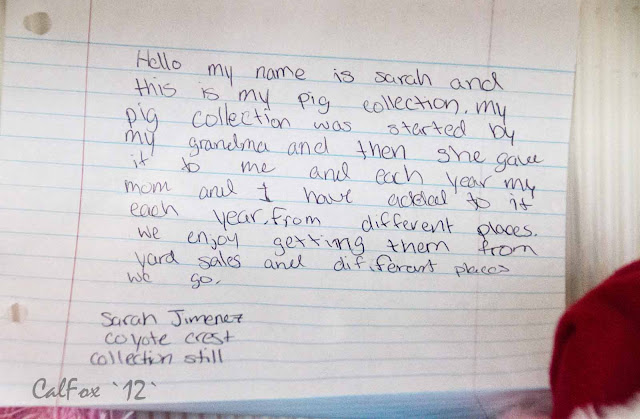 Hello my name is sarah and
this is my pig collection. my
pig collection was started by
my grandma and then she gave
it to me and each year my
mom and I have added to it
each year. from different places.
we enjoy getting them from
yard sales and different places
we go.
Sarah Jimenez
coyote crest
collection still
CalFox `12`